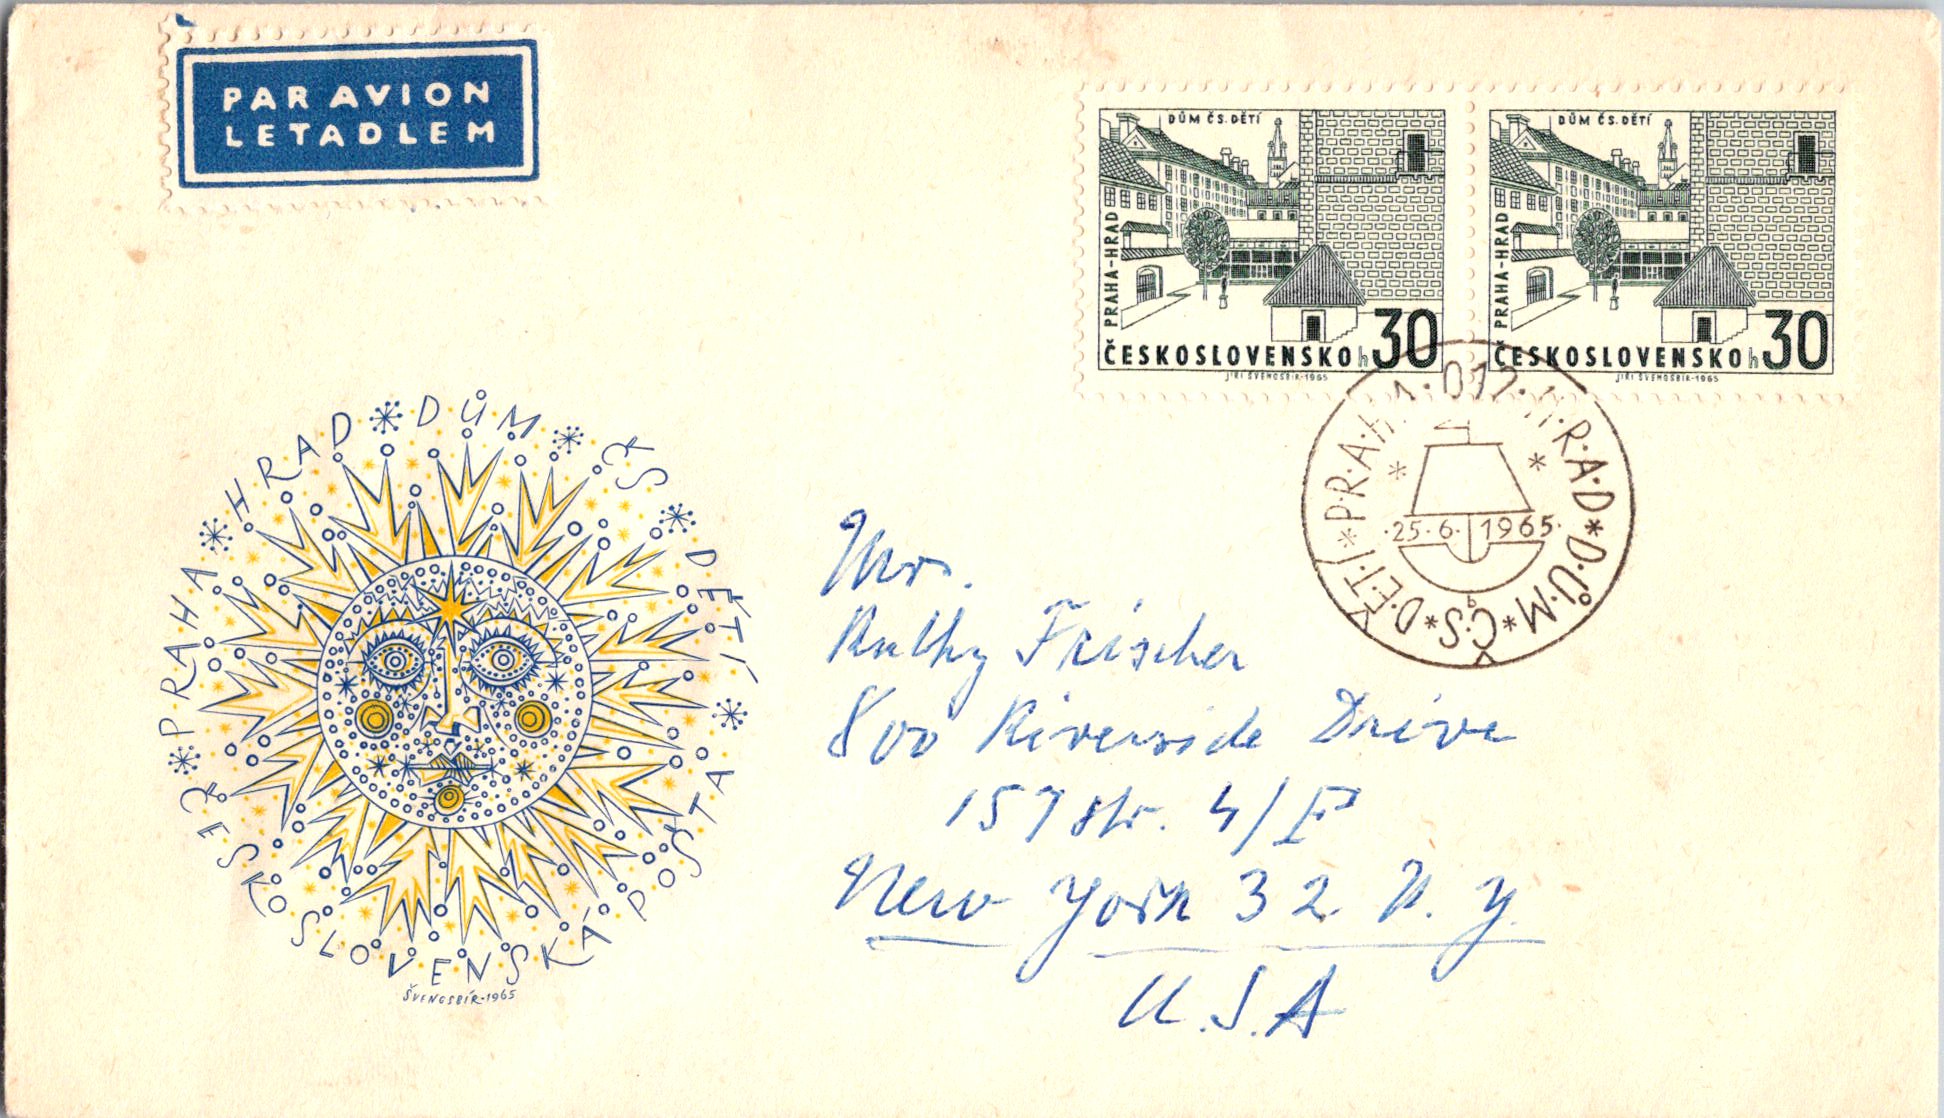 PAR AVION
LETADLEM
DŮM ČS. DĚTÍ
PRAHA-HRAD
ČESKOSLOVENSKO h 30
JIŘÍ ŠVENGSBÍR-1965
DŮM ČS. DĚTÍ
PRAHA-HRAD
ČESKOSLOVENSKO h 30
JIŘÍ ŠVENGSBÍR-1965
P·R·A·H·A·012·H·R·A·D*D·Ů·M*Č·S*D·Ě·T·Í*
·25·6· 1965·
b
PRAHA HRAD DŮM ČS DĚTÍ
ČESKOSLOVENSKÁ POŠTA
ŠVENGSBÍR-1965
Mrs.
Kathy Frischer
800 Riverside Drive
157 str. 4/F
New York 32 N. Y.
U.S.A